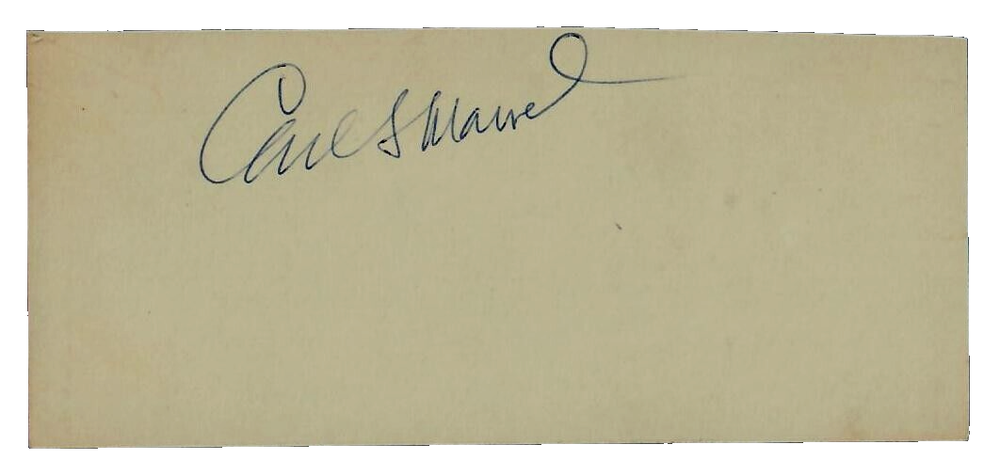 Carl S Marvel